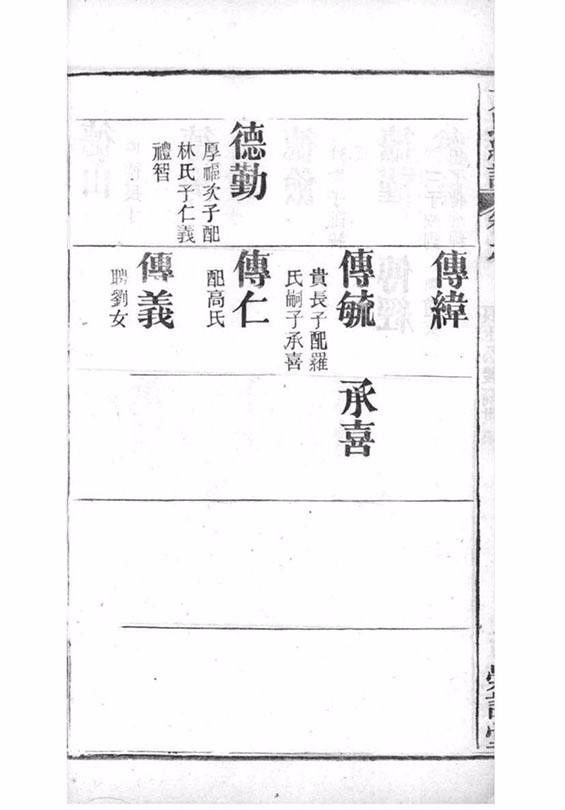 傳緯
傳毓
貴長子配羅
氏嗣子承喜
承喜
德勤
厚福次子配
林氏子仁義
禮智
傳仁
配高氏
傳義
聘劉女